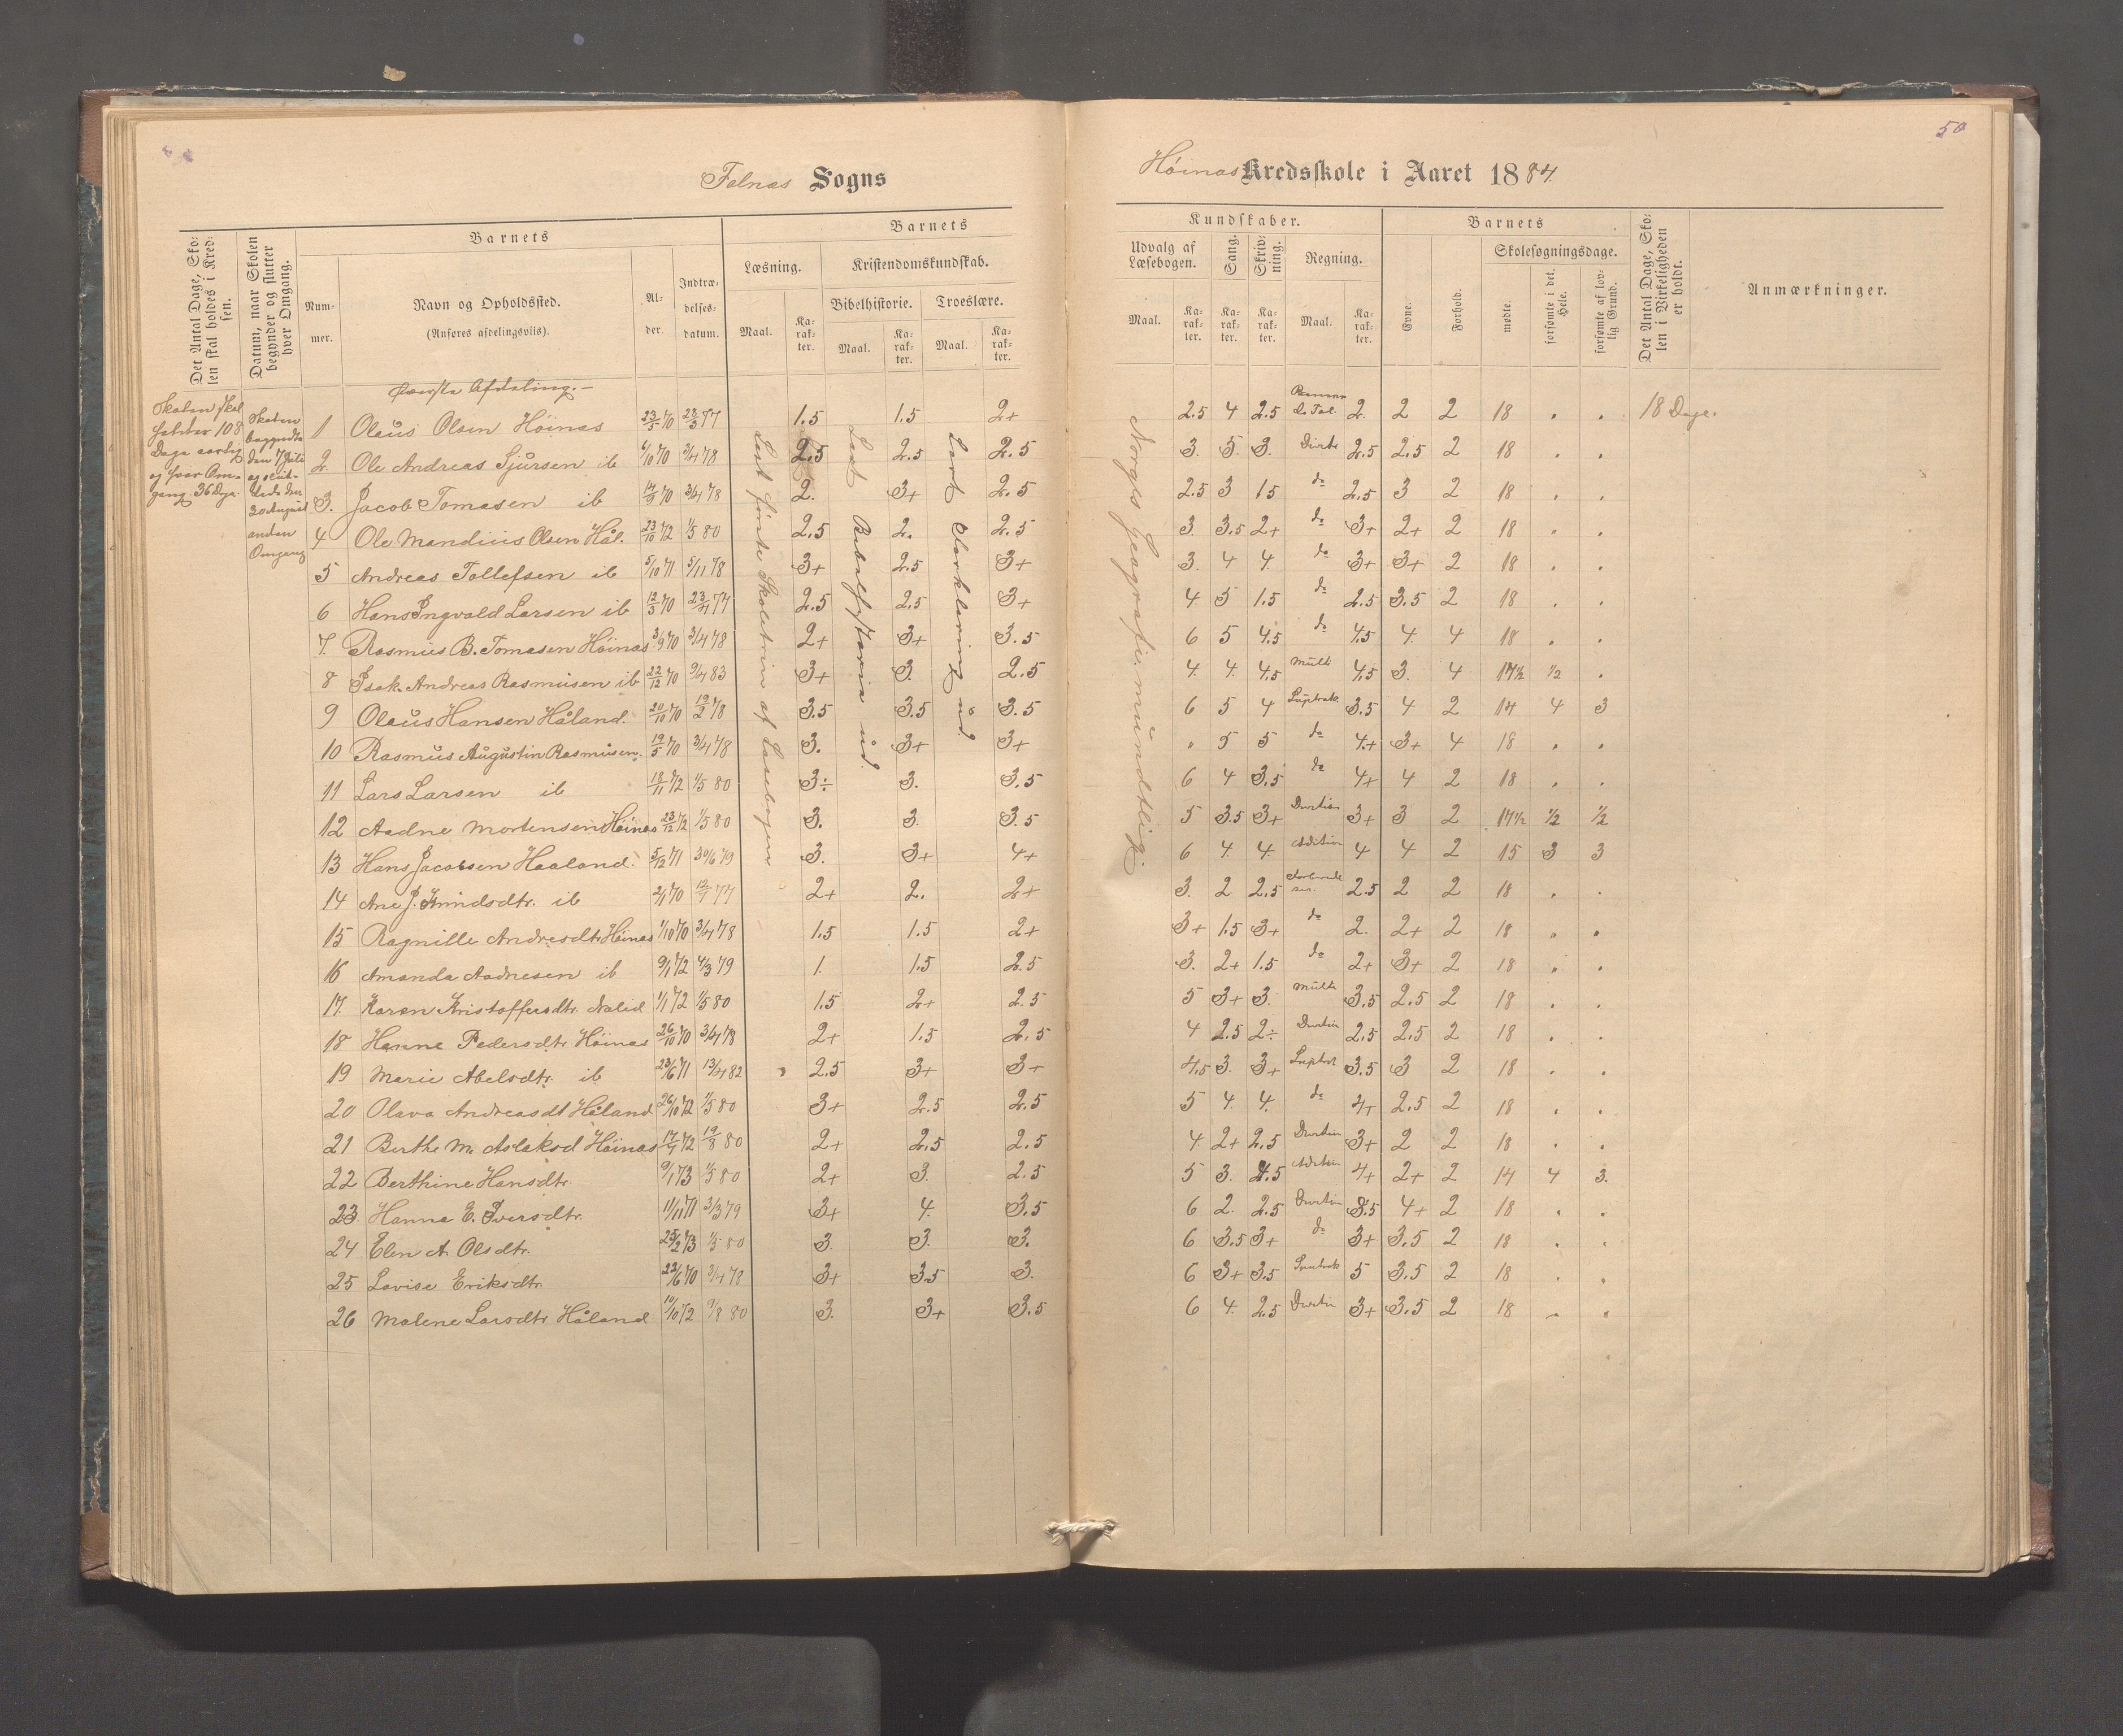 50
Falnæs Sogns
Høinæs Kredsskole i Aaret 1884.
Det Antal Dage, Skolen skal holdes i Kredsen.
Datum, naar Skolen begynder og slutter hver Omgang.
Barnets
Nummer.
Navn og Opholdssted.
(Anføres afdelingsvis).
Alder.
Indtrædelsesdatum.
Barnets
Læsning.
Maal.
Karakter.
Kristendomskundskab.
Bibelhistorie.
Maal.
Karakter.
Troeslære.
Maal.
Karakter.
Kundskaber.
Udvalg af Læsebogen.
Maal.
Karakter.
Sang.
Karakter.
Skrivning.
Karakter.
Regning.
Maal.
Karakter.
Barnets
Evne.
Forhold.
Skolesøgningsdage.
mødte.
forsømte i det Hele.
forsømte af lovlig Grund.
Det Antal Dage, Skolen i Virkeligheden er holdt.
Anmærkninger.
Skolen skal
holdes 108
Dage aarlig
og hver Om-
gang 36 Dge.
Skolen
begyndte
den 7 Juli
og slut-
tede den
20 August
anden
Omgang
Første Afdeling.
Læst første Skoletrin af Læsebogen
Læst Bibelhistorie ud.
Lært Forklaring ud
Norges Geografi mundtlig.
1 Olaus Olsen Høinæs 23/5 70 28/3 77 1.5 1.5 2+ 2.5 4 2.5 2. 2 2 18 . . 18 Dage.
2. Ole Andreas Sjursen ib 6/10 70 3/4 78 2.5 2.5 2.5 3. 5. 3. 2.5 2.5 2 18 . .
3. Jacob Tomasen ib 17/9 70 3/4 78 2. 3+ 2.5 2.5 3 1.5 do 2.5 3 2 18 . .
4 Ole Mandius Olsen Hål. 23/10 72 1/5 80 2.5 2. 2.5 3. 3.5 2+ do 3+ 2+ 2 18 . .
5 Andreas Tollefsen ib 5/10 71 5/11 78 3+ 2.5 3+ 3. 4 4. do 3+ 3+ 2 18 . .
6 Hans Ingvald Larsen ib 12/3 70 23/4 77 2.5 2.5 3+ 4. 5 1.5 do 2.5 3.5 2 18 . .
7. Rasmus B. Tomasen Høinæs 3/9 70 3/4 78 2+ 3+ 3.5 6 5 4.5 do 4.5 4. 4 18 . .
8 Isak Andreas Rasmusen ib 22/12 70 9/4 83 3+ 3. 2.5 4. 4. 4.5 Multi 4.5 3. 4 17½ ½ .
9 Olaus Hansen Håland. 20/10 70 19/2 78 3.5 3.5 3.5 6 5 4 3.5 4 2 14 4 3
10 Rasmus Augustin Rasmusen. 19/5 70 3/4 78 3. 3+ 3+ . 5 5 do 4+ 3+ 4 18 . .
11 Lars Larsen ib 18/11 72 1/5 80 3÷ 3. 3.5 6 4 3.5 do 4+ 4 2 18 . .
12 Aadne Mortensen Høinæs 23/12 72 1/5 80 3. 3. 3.5 5 3.5 3+ 3+ 3 2 17½ ½ ½
13 Hans Jacobsen Haaland. 5/12 71 30/6 79 3. 3+ 4+ 6 4. 4. Adition 4 4 2 15 3 3
14 Ane J. Knudsdtr. ib 2/1 70 12/7 77 2+ 2. 2+ 3. 2 2.5 2.5 2 2 18 . .
15 Ragnille Andreasdtr Høinæs 1/10 70 3/4 78 1.5 1.5 2+ 3+ 1.5 3+ do 2. 2+ 2 18 . .
16 Amanda Aadnesen ib 9/1 72 4/3 79 1. 1.5 2.5 3. 2+ 1.5 do 2+ 3+ 2 18 . .
17. Karen Kristoffersdtr. 1/1 72 1/5 80 1.5 2+ 2.5 5 3+ 3. Multi 3.5 2.5 2 18 . .
18 Hanne Pedersdtr Høinæs 26/10 70 3/4 78 2+ 1.5 2.5 4 2.5 2÷ 2.5 2.5 2 18 . .
19 Marie Abelsdtr. ib 23/6 71 13/4 82 2.5 3+ 3+ 4.5 3. 3+ 3.5 3 2 18 . .
20 Olava Andreasdt Håland 26/10 72 1/5 80 3+ 2.5 2.5 5 4. 4. do 4+ 2.5 2 18 . .
21 Berthe M. Aslaksd Høinæs 17/7 72 19/8 80 2+ 2.5 2.5 4. 2+ 2.5 3+ 2 2 18 . .
22 Berthine Hansdtr. 9/1 73 1/5 80 2+ 3. 2.5 5 3. 2.5 4+ 2+ 2 14 4 3.
23. Hanna E. Iversdtr. 11/11 71 3/3 79 3+ 4. 3.5 6 2. 2.5 3.5 4+ 2 18 . .
24 Elen A. Olsdtr. 25/2 73 1/5 80 3. 3. 3. 6 3.5 3+ do 3+ 3.5 2 18 . .
25 Lovise Eriksdtr. 22/6 70 3/4 78 3+ 3.5 3. 6 3+ 3.5 5 3.5 2 18 . .
26 Malene Larsdtr Håland 10/10 72 9/8 80 3. 3+ 3.5 6 4. 2.5 3+ 3.5 2 18 . .